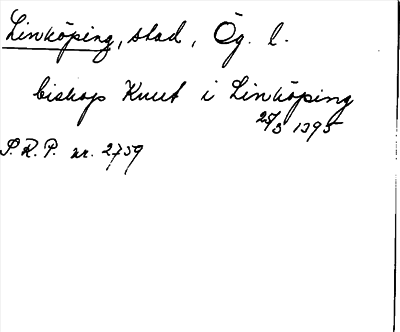 Linköping, stad, Ög. l.
biskop Knut i Linköping
25/3 1395
S.R.P. nr. 2759